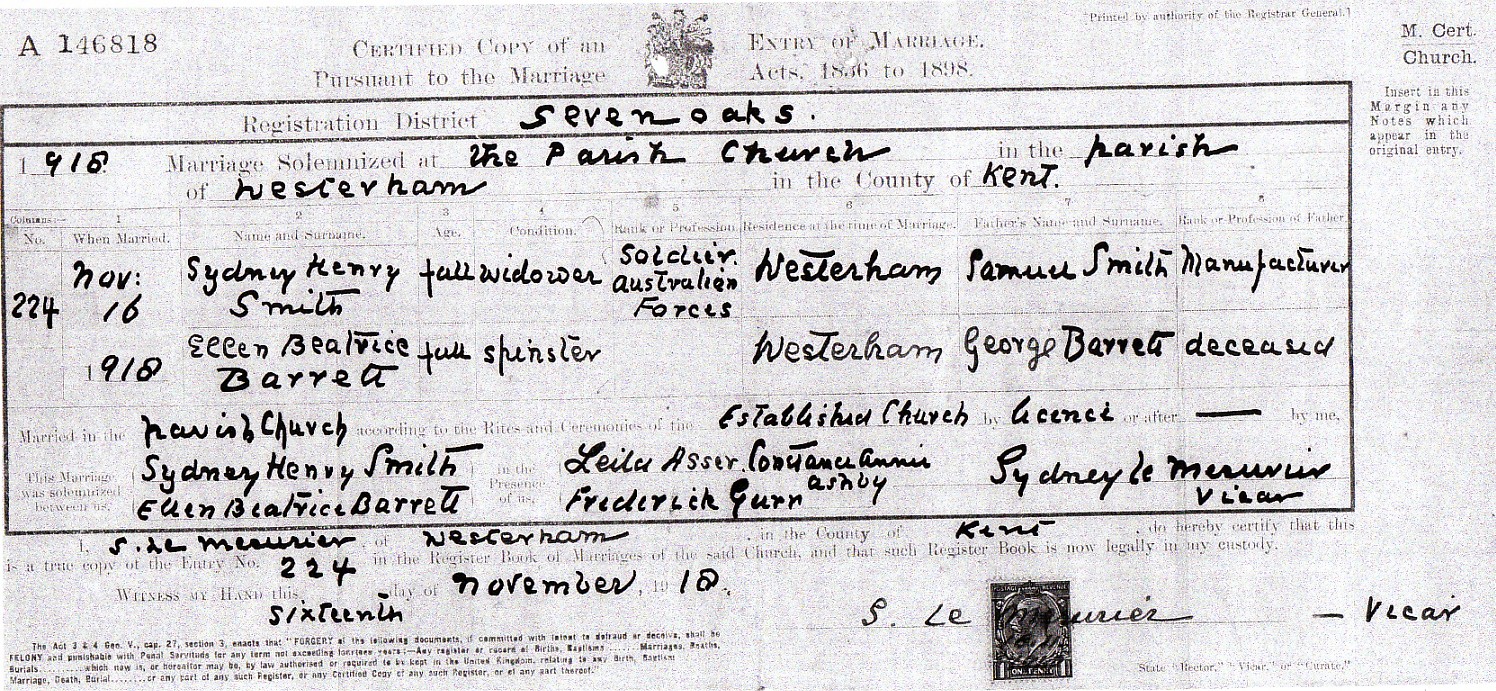 "Printed by authority of the Registrar General."
A 146818
CERTIFIED COPY OF AN ENTRY OF MARRIAGE.
PURSUANT TO THE MARRIAGE ACTS, 1836 TO 1898.
M. Cert.
Church.
Insert in this
Margin any
Notes which
appear in the
original entry.
Registration District Sevenoaks.
1918. Marriage Solemnized at the Parish Church in the parish
of Westerham in the County of Kent.
Columns:— 1 2 3 4 5 6 7 8
No. When Married. Name and Surname. Age. Condition. Rank or Profession. Residence at the time of Marriage. Father's Name and Surname. Rank or Profession of Father.
224 Nov: 16 1918
Sydney Henry Smith full widower Soldier. Australian Forces Westerham Samuel Smith Manufacturer
Ellen Beatrice Barrett full spinster Westerham George Barrett deceased
Married in the Parish Church according to the Rites and Ceremonies of the Established Church by licence or after — by me,
This Marriage was solemnized between us, Sydney Henry Smith Ellen Beatrice Barrett in the Presence of us, Leila Asser. Constance Annie Ashby Frederick Gurr Sydney le Mesurier Vicar
I, S. Le Mesurier of Westerham, in the County of Kent, do hereby certify that this
is a true copy of the Entry No. 224 in the Register Book of Marriages of the said Church, and that such Register Book is now legally in my custody.
WITNESS MY HAND this, Sixteenth day of November, 1918.
S. Le Mesurier — Vicar
POSTAGE REVENUE
1 ONE PENNY 1
The Act 3 & 4 Geo. V., cap. 27, section 3, enacts that "FORGERY of the following documents, if committed with intent to defraud or deceive, shall be
FELONY and punishable with Penal Servitude for any term not exceeding fourteen years:—Any register or record of Births, Baptisms.......Marriages, Deaths,
Burials.........which now is, or hereafter may be, by law authorised or required to be kept in the United Kingdom, relating to any Birth, Baptism
Marriage, Death, Burial.......or any part of any such Register, or any Certified Copy of any such Register, or of any part thereof."
State "Rector," "Vicar," or "Curate."